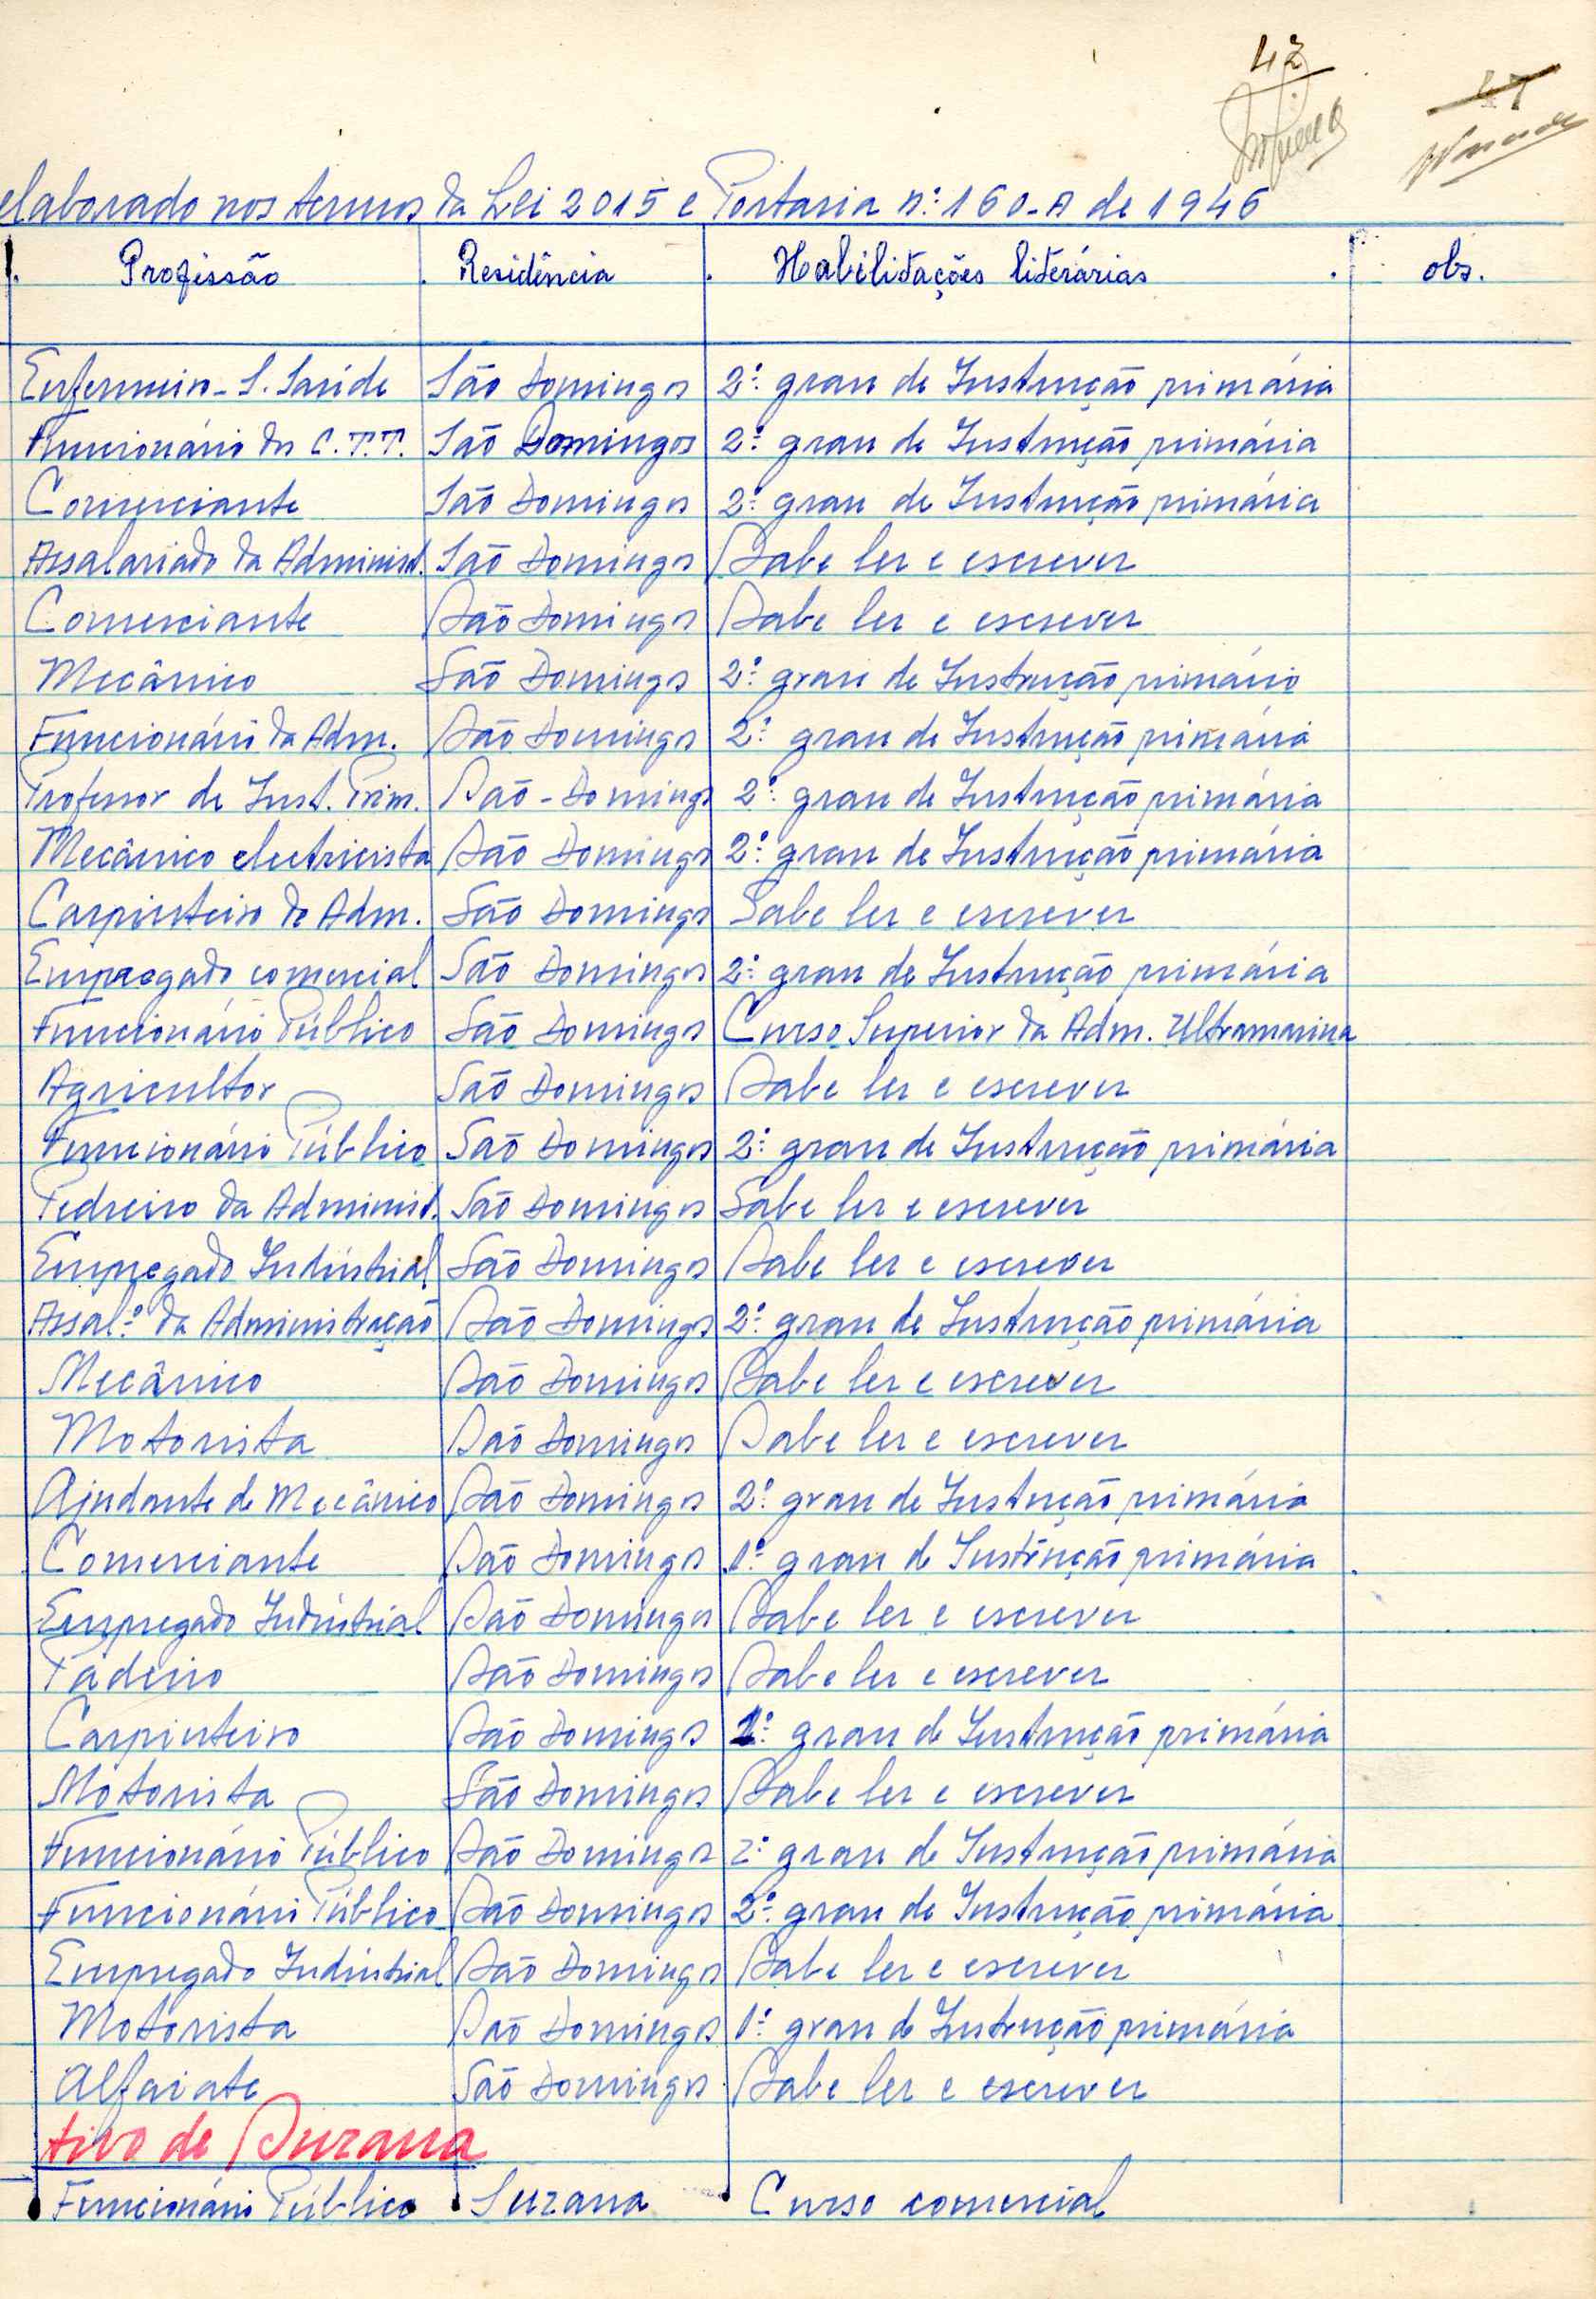 42
47
elaborado nos termos da Lei 2015 e Portaria nº 160-A de 1946
Profissão Residência Habilitações literárias obs.
Enfermeiro - S. Saúde São Domingos 2º grau de Instrução primária
Funcionário dos C.T.T. São Domingos 2º grau de Instrução primária
Comerciante São Domingos 2º grau de Instrução primária
Assalariado da Administ. São Domingos Sabe ler e escrever
Comerciante São Domingos Sabe ler e escrever
Mecânico São Domingos 2º grau de Instrução primário
Funcionário da Adm. São Domingos 2º grau de Instrução primária
Professor de Inst. Prim. São-Domingos 2º grau de Instrução primária
Mecânico electricista São Domingos 2º grau de Instrução primária
Carpinteiro da Adm. São Domingos Sabe ler e escrever
Empregado comercial São Domingos 2º grau de Instrução primária
Funcionário Público São Domingos Curso Superior da Adm. Ultramarina
Agricultor São Domingos Sabe ler e escrever
Funcionário Público São Domingos 2º grau de Instrução primária
Pedreiro da Administ. São Domingos Sabe ler e escrever
Empregado Indústrial São Domingos Sabe ler e escrever
Assalº da Administração São Domingos 2º grau de Instrução primária
Mecânico São Domingos Sabe ler e escrever
Motorista São Domingos Sabe ler e escrever
Ajudante de Mecânico São Domingos 2º grau de Instrução primária
Comerciante São Domingos 1º grau de Instrução primária
Empregado Indústrial São Domingos Sabe ler e escrever
Padeiro São Domingos Sabe ler e escrever
Carpinteiro São Domingos 1º grau de Instrução primária
Motorista São Domingos Sabe ler e escrever
Funcionário Público São Domingos 2º grau de Instrução primária
Funcionário Público São Domingos 2º grau de Instrução primária
Empregado Indústrial São Domingos Sabe ler e escrever
Motorista São Domingos 1º grau de Instrução primária
Alfaiate São Domingos Sabe ler e escrever
tivo de Suzana
Funcionário Público Suzana Curso comercial